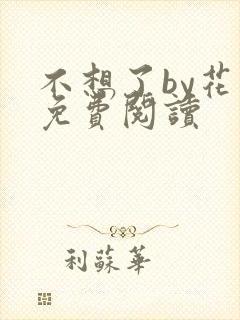 不想了by花
免費閱讀
利蘇華